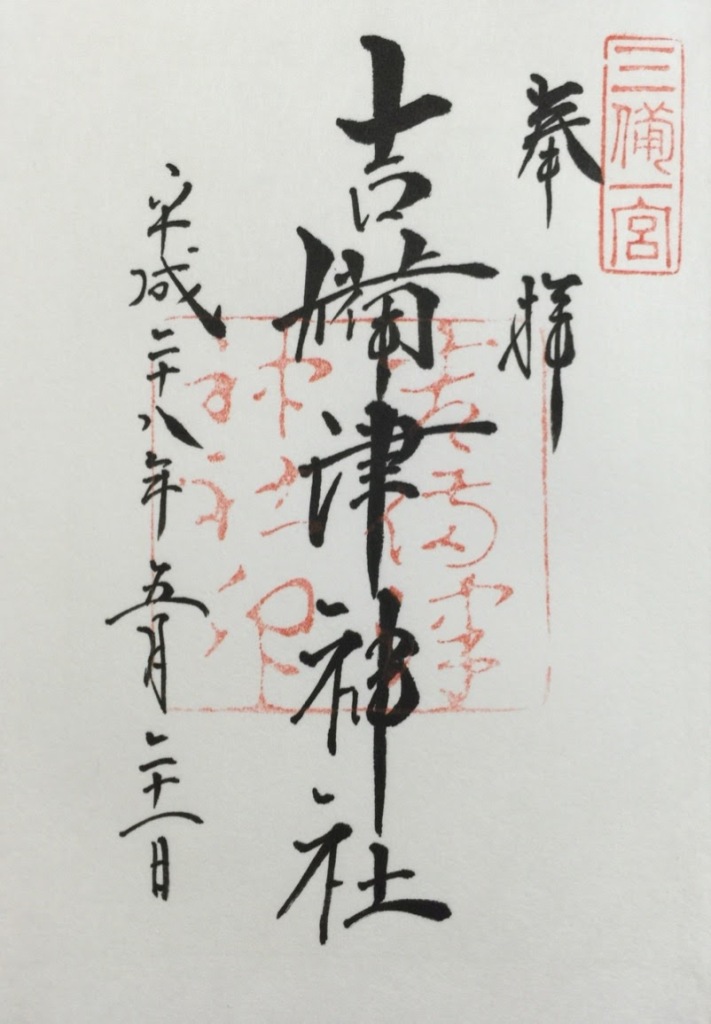 三備一宮
奉拝
吉備津神社
平成二十八年五月二十一日